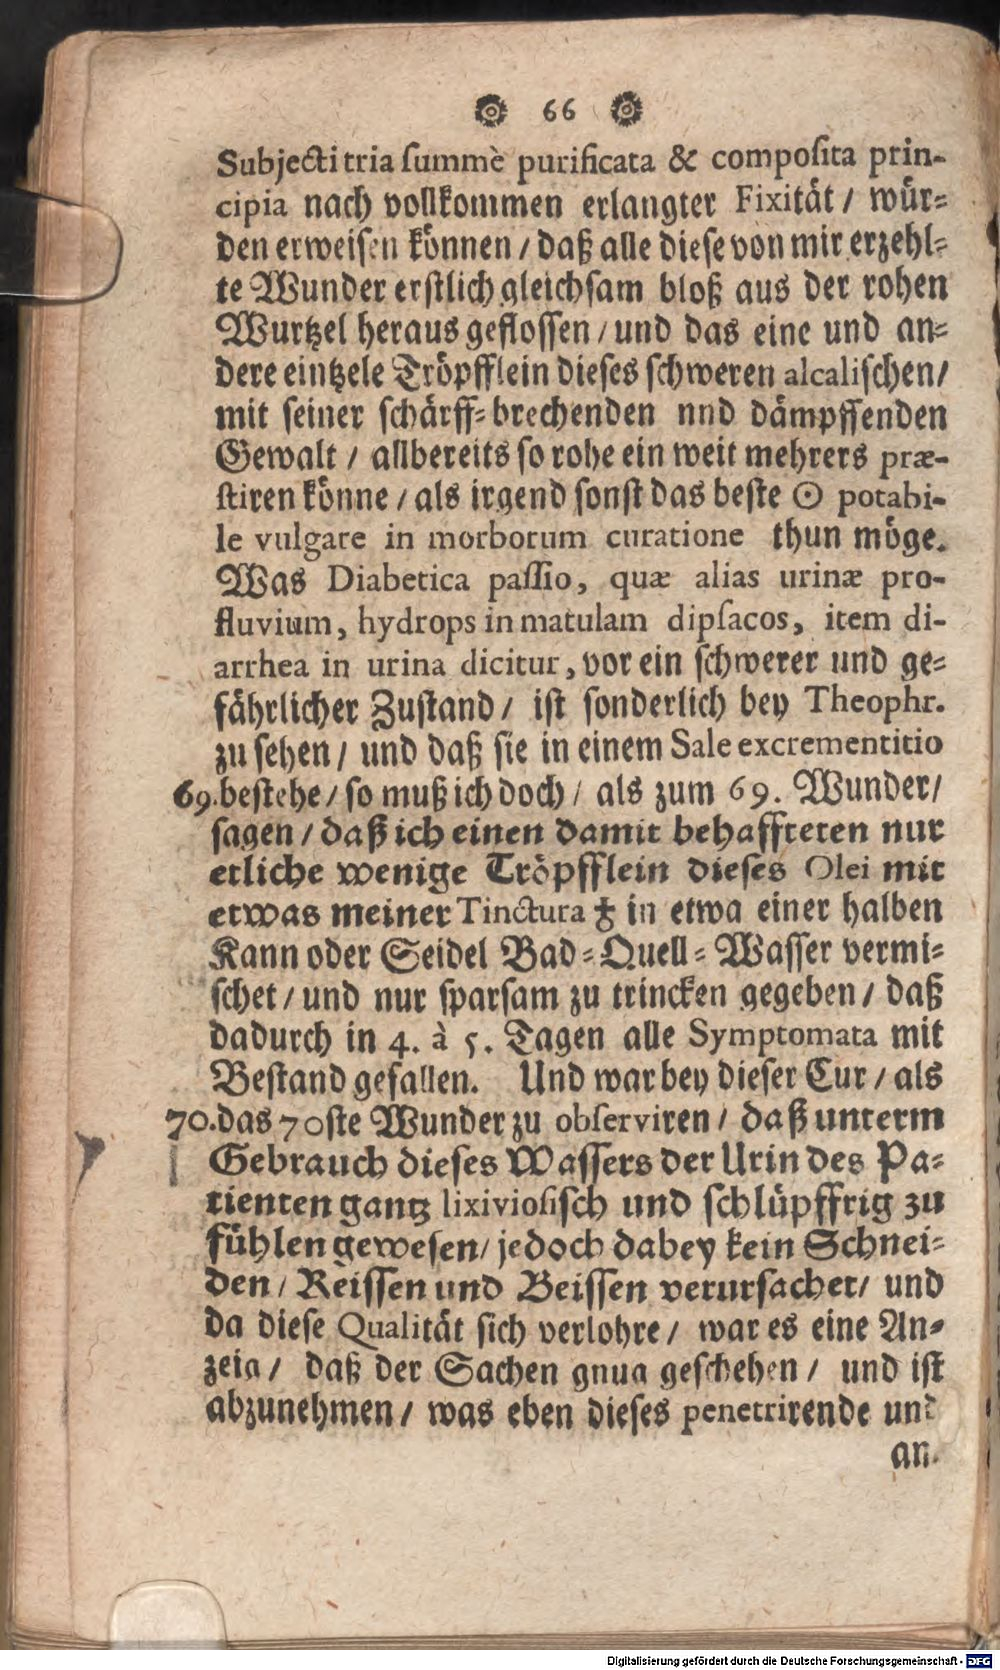 66
Subjecti tria summè purificata & composita prin-
cipia nach vollkommen erlangter Fixität / wür-
den erweisen können / daß alle diese von mir erzehl-
te Wunder erstlich gleichsam bloß aus der rohen
Wurtzel heraus geflossen / und das eine und an-
dere eintzele Tröpfflein dieses schweren alcalischen /
mit seiner schärff-brechenden nnd dämpffenden
Gewalt / allbereits so rohe ein weit mehrers præ-
stiren könne / als irgend sonst das beste ☉ potabi-
le vulgare in morborum curatione thun möge.
Was Diabetica passio, quæ alias urinæ pro-
fluvium, hydrops in matulam dipsacos, item di-
arrhea in urina dicitur, vor ein schwerer und ge-
fährlicher Zustand / ist sonderlich bey Theophr.
zu sehen / und daß sie in einem Sale excrementitio
69. bestehe / so muß ich doch / als zum 69. Wunder /
sagen / daß ich einen damit behaffteten nur
etliche wenige Tröpfflein dieses Olei mit
etwas meiner Tinctura ♁ in etwa einer halben
Kann oder Seidel Bad-Quell-Wasser vermi-
schet / und nur sparsam zu trincken gegeben / daß
dadurch in 4. à 5. Tagen alle Symptomata mit
Bestand gefallen. Und war bey dieser Cur / als
70. das 70ste Wunder zu observiren / daß unterm
Gebrauch dieses Wassers der Urin des Pa-
tienten gantz lixiviosisch und schlüpffrig zu
fühlen gewesen / jedoch dabey kein Schnei-
den / Reissen und Beissen verursachet / und
da diese Qualität sich verlohre / war es eine An-
zeig / daß der Sachen gnug geschehen / und ist
abzunehmen / was eben dieses penetrirende und
an-
Digitalisierung gefördert durch die Deutsche Forschungsgemeinschaft - DFG